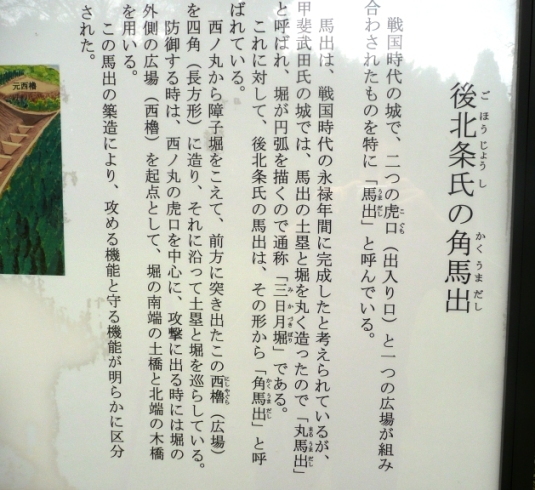 後北条氏の角馬出
ごほうじょうし かくうまだし
戦国時代の城で、二つの虎口（出入り口）と一つの広場が組み
合わされたものを特に「馬出」と呼んでいる。
馬出は、戦国時代の永禄年間に完成したと考えられているが、
甲斐武田氏の城では、馬出の土塁と堀を丸く造ったので「丸馬出」
と呼ばれ、堀が円弧を描くので通称「三日月堀」である。
これに対して、後北条氏の馬出は、その形から「角馬出」と呼
ばれている。
西ノ丸から障子堀をこえて、前方に突き出たこの西櫓（広場）
を四角（長方形）に造り、それに沿って土塁と堀を巡らしている。
防御する時は、西ノ丸の虎口を中心に、攻撃に出る時には堀の
外側の広場（西櫓）を起点として、堀の南端の土橋と北端の木橋
を用いる。
この馬出の築造により、攻める機能と守る機能が明らかに区分
された。
元西櫓